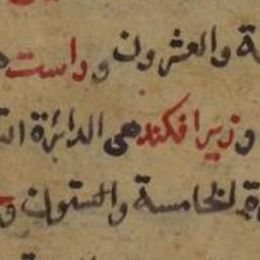 ة والعشرون وراست
وزيرافكند هى الدائرة
ة الخامسة والستون و